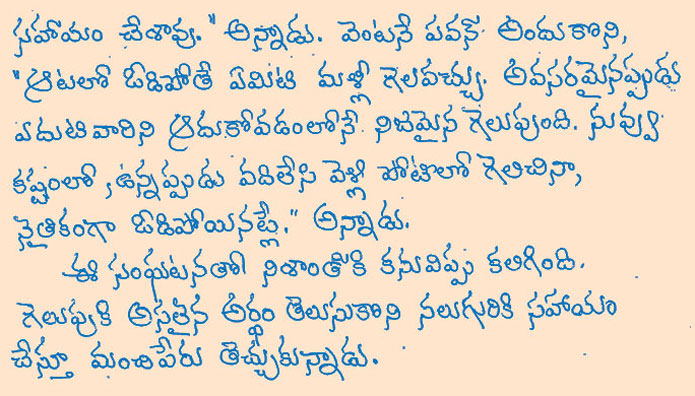 సహాయం చేశావు." అన్నాడు. వెంటనే పవన్ అందుకొని,
"ఆటలో ఓడిపోతే ఏమిటి మళ్లీ గెలవచ్చు. అవసరమైనప్పుడు
ఎదుటివారిని ఆదుకోవడంలోనే నిజమైన గెలుపుంది. నువ్వు
కష్టంలో, ఉన్నప్పుడు వదిలేసి వెళ్లి పోటీలో గెలిచినా,
నైతికంగా ఓడిపోయినట్లే." అన్నాడు.
ఈ సంఘటనతో నిశాంత్‌కి కనువిప్పు కలిగింది.
గెలుపుకి అసలైన అర్థం తెలుసుకొని నలుగురికి సహాయం
చేస్తూ మంచిపేరు తెచ్చుకున్నాడు.